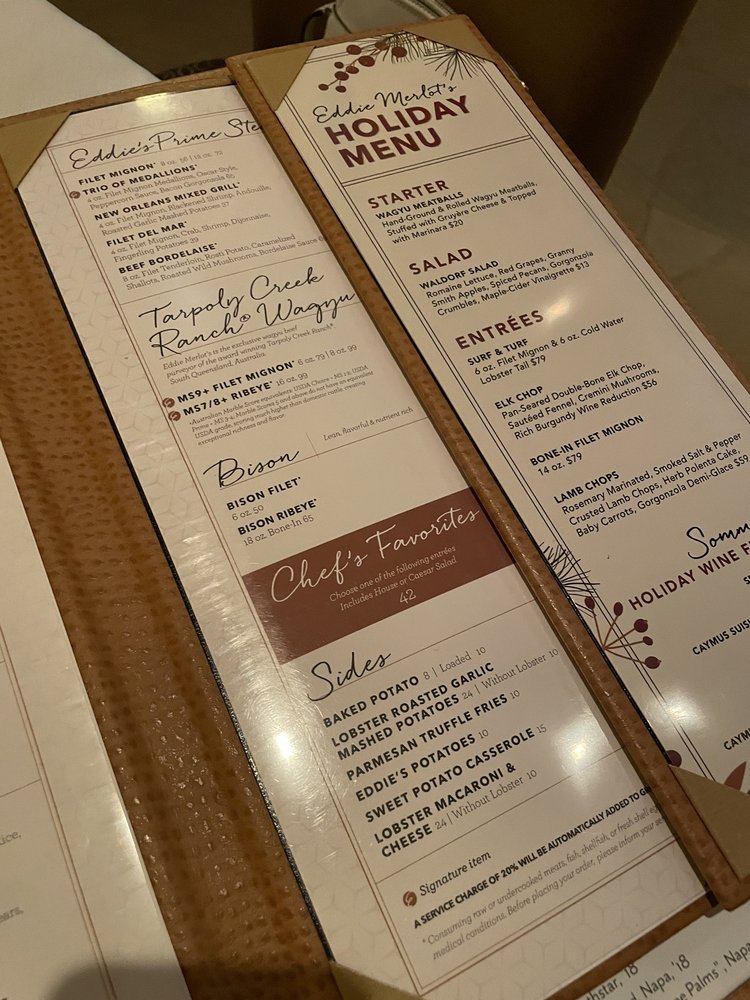 Eddie's Prime Ste
FILET MIGNON* 8 oz. 58 | 12 oz. 72
TRIO OF MEDALLIONS*
4 oz. Filet Mignon Medallions, Oscar Style,
Peppercorn Sauce, Bacon Gorgonzola 65
NEW ORLEANS MIXED GRILL*
4 oz. Filet Mignon, Blackened Shrimp, Andouille,
Roasted Garlic Mashed Potatoes 37
FILET DEL MAR*
4 oz. Filet Mignon, Crab, Shrimp, Dijonnaise,
Fingerling Potatoes 39
BEEF BORDELAISE*
8 oz. Filet Tenderloin, Rosti Potato, Caramelized
Shallots, Roasted Wild Mushrooms, Bordelaise Sauce
Tarpoly Creek
Ranch® Wagyu
Eddie Merlot's is the exclusive wagyu beef
purveyor of the award winning Tarpoly Creek Ranch®
South Queensland, Australia.
MS9+ FILET MIGNON* 6 oz. 79 | 8 oz. 99
MS7/8+ RIBEYE* 16 oz. 99
*Australian Marble Score equivalents: USDA Choice = MS 1-2, USDA
Prime = MS 3-4. Marble Scores 5 and above do not have an equivalent
USDA grade, scoring much higher than domestic cattle, creating
exceptional richness and flavor.
Bison
Lean, flavorful & nutrient rich
BISON FILET*
6 oz. 50
BISON RIBEYE*
18 oz. Bone-In 65
Chef's Favorites
Choose one of the following entrées
Includes House or Caesar Salad
42
Sides
BAKED POTATO 8 | Loaded 10
LOBSTER ROASTED GARLIC
MASHED POTATOES 24 | Without Lobster 10
PARMESAN TRUFFLE FRIES 10
EDDIE'S POTATOES 10
SWEET POTATO CASSEROLE 15
LOBSTER MACARONI &
CHEESE 24 | Without Lobster 10
Signature item
A SERVICE CHARGE OF 20% WILL BE AUTOMATICALLY ADDED TO
* Consuming raw or undercooked meats, fish, shellfish, or fresh shell
medical conditions. Before placing your order, please inform your
Eddie Merlot's
HOLIDAY
MENU
STARTER
WAGYU MEATBALLS
Hand-Ground & Rolled Wagyu Meatballs,
Stuffed with Gruyère Cheese & Topped
with Marinara $20
SALAD
WALDORF SALAD
Romaine Lettuce, Red Grapes, Granny
Smith Apples, Spiced Pecans, Gorgonzola
Crumbles, Maple-Cider Vinaigrette $13
ENTRÉES
SURF & TURF
6 oz. Filet Mignon & 6 oz. Cold Water
Lobster Tail $79
ELK CHOP
Pan-Seared Double-Bone Elk Chop,
Sautéed Fennel, Cremini Mushrooms,
Rich Burgundy Wine Reduction $56
BONE-IN FILET MIGNON
14 oz. $79
LAMB CHOPS
Rosemary Marinated, Smoked Salt & Pepper
Crusted Lamb Chops, Herb Polenta Cake,
Baby Carrots, Gorgonzola Demi-Glace $59
Somm
HOLIDAY WINE F
CAYMUS SUIS
CAYM
CAYM
thstar, '18
Napa, '18
Palms", Napa